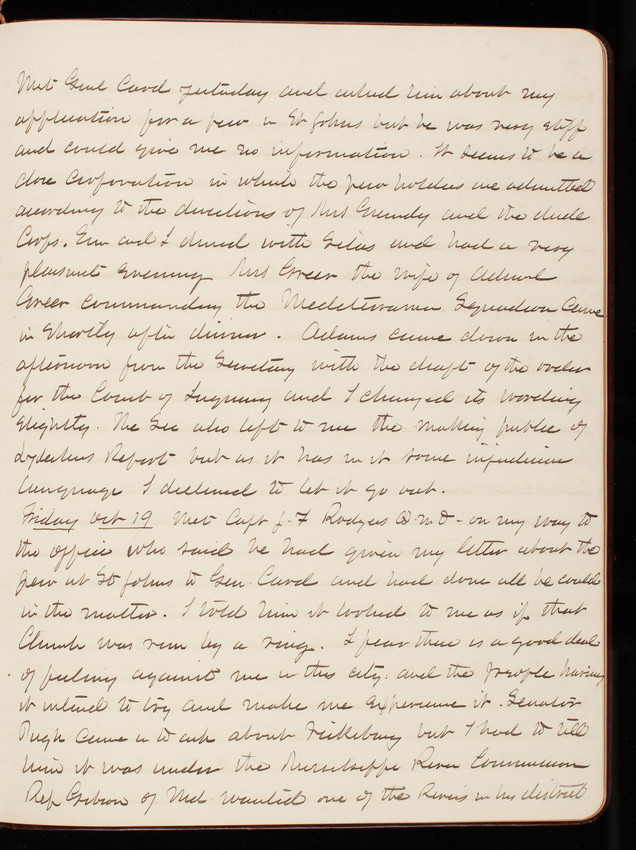 Met Genl Card yesterday and asked him about my
application for a pew in St Johns but he was very stiff
and could give me no information. It seems to be a
close Corporation in which the pew holders are admitted
according to the directions of Mrs Grundy and the dude
Corps. Em and I dined with Silas and had a very
pleasant evening Mrs Greer the wife of Admiral
Greer commanding the Mediterranean Squadron came
in shortly after dinner. Adams came down in the
afternoon from the Secretary with the draft of the order
for the Court of Inquiry and I changed its wording
slightly. The Sec also left to me the making public of
Lydeckers Report but as it has in it some injudicious
language I declined to let it go out.
Friday Oct 19 Met Capt J. F Rodgers on my way to
the office who said he had given my letter about the
pew at St Johns to Gen. Card and had done all he could
in the matter. I told him it looked to me as if that
Church was run by a ring. I fear there is a good deal
of feeling against me in this city. and the people having
it intend to try and make me experience it. Senator
Pugh came in to ask about Vicksburg but I had to tell
him it was under the Mississippi River Commission
Rep Gibson of Md wanted one of the Rivers in his district